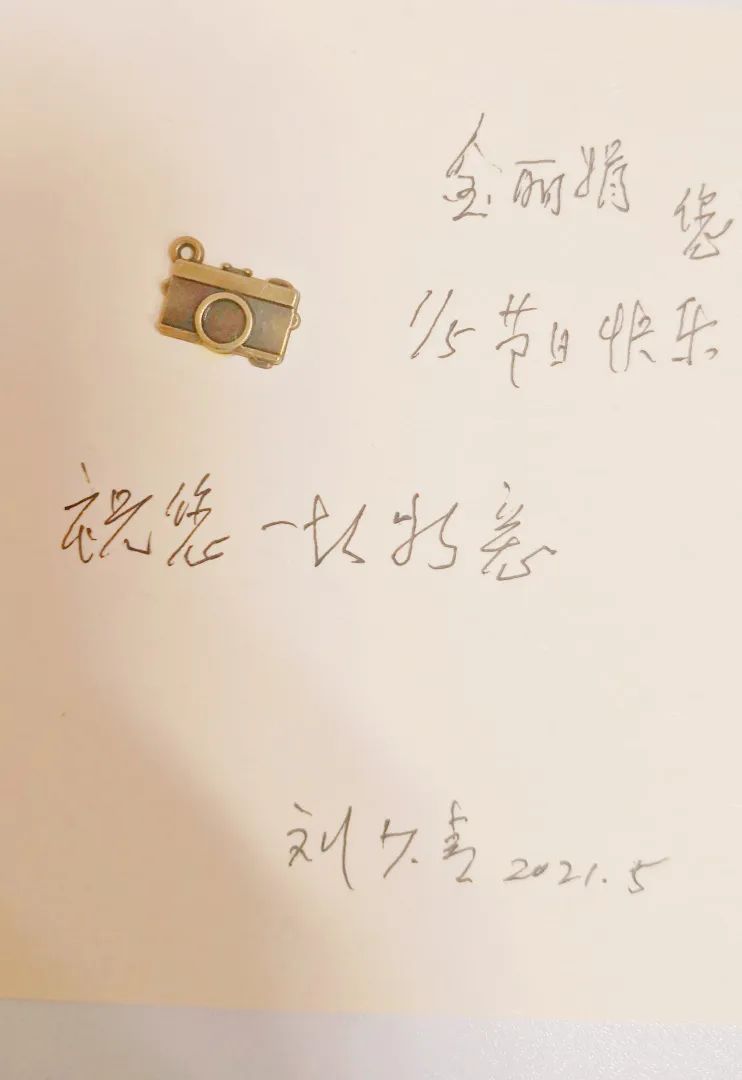 金丽娟 您
1/5 节日快乐
祝您一切如意
刘
2021.5